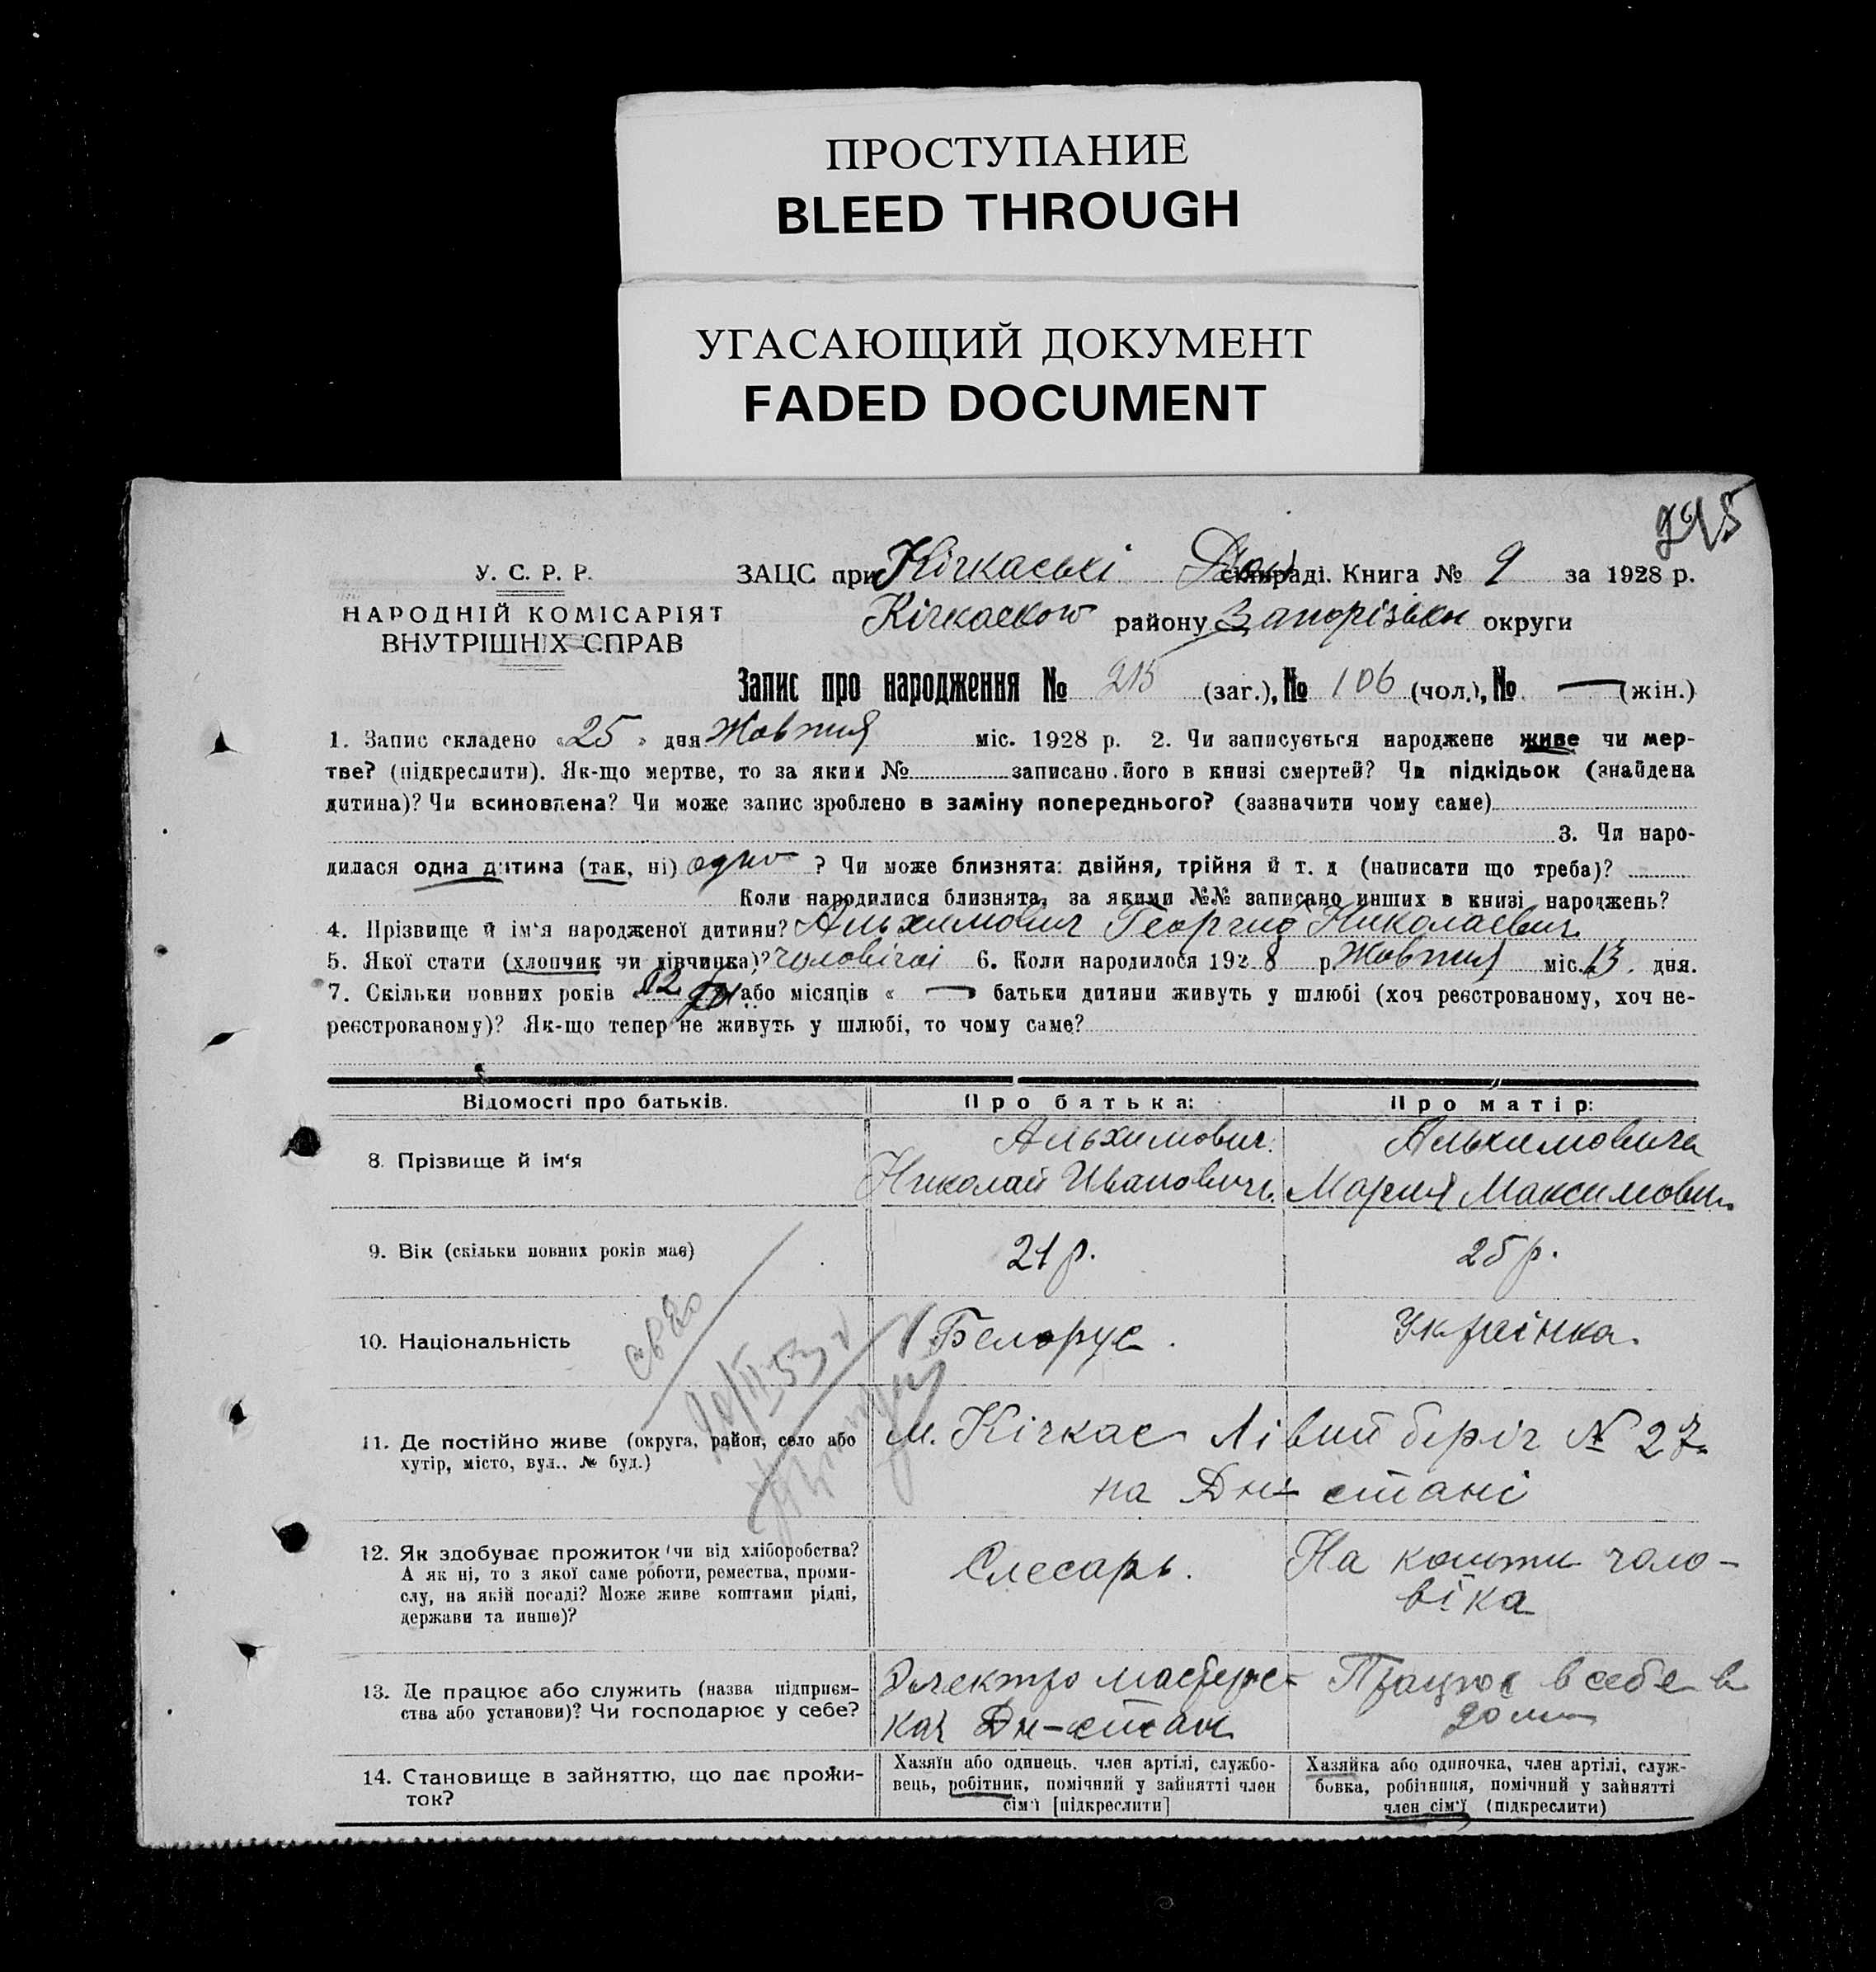 ПРОСТУПАНИЕ
BLEED THROUGH
УГАСАЮЩИЙ ДОКУМЕНТ
FADED DOCUMENT
У. С. Р. Р.
НАРОДНІЙ КОМІСАРІЯТ
ВНУТРІШНІХ СПРАВ
ЗАЦС при Кічкаські сільраді. Книга № 9 за 1928 р.
Кічкасков району Запорізьки округи
Запис про народження № 215 (заг.), № 106 (чол.), № — (жін.)
1. Запис складено «25» дня Жовтня міс. 1928 р. 2. Чи записується народжене живе чи мер-
тве? (підкреслити). Як-що мертве, то за яким № записано його в книзі смертей? Чи підкідьок (знайдена
дитина)? Чи всиновлена? Чи може запис зроблено в заміну попереднього? (зазначити чому саме)
3. Чи наро-
дилася одна дитина (так, ні) одно ? Чи може близнята: двійня, трійня й т. д (написати що треба)?
Коли народилися близнята, за якими №№ записано инших в книзі народжень?
4. Прізвище й ім‘я народженої дитини? Альхимович Георгий Николаевич
5. Якої стати (хлопчик чи дівчинка)? чоловічої 6. Коли народилося 1928 р Жовтня міс. 13. дня.
7. Скільки повних років «02 або місяців « — » батьки дитини живуть у шлюбі (хоч реєстрованому, хоч не-
реєстрованому)? Як-що тепер не живуть у шлюбі, то чому саме?
Відомості про батьків. Про батька: Про матір:
8. Прізвище й ім‘я
Альхимович
Николай Иванович.
Альхимовича
Мария Максимовн.
9. Вік (скільки повних років має) 21 р. 25 р.
10. Національність Белорус. Українка.
11. Де постійно живе (округа, район, село або
хутір, місто, вул.. № буд.)
м. Кічкас Лівий беріг № 27.
на Дн- стані
12. Як здобуває прожиток чи від хліборобства?
А як ні, то з якої саме роботи, ремества, проми-
слу, на якій посаді? Може живе коштами рідні,
держави та инше)?
Слесарь.
На кошти чоло-
віка
13. Де працює або служить (назва підприєм-
ства або установи)? Чи господарює у себе?
Електро мастерс-
кая Дн-стан
Працює в себе в
доми
14. Становище в зайняттю, що дає прожи-
ток?
Хазяїн або одинець. член артілі, службо-
вець, робітник, помічний у зайнятті член
сім‘ї [підкреслити]
Хазяйка або одиночка, член артілі, служ-
бовка, робітниця, помічний у зайнятті
член сім‘ї (підкреслити)